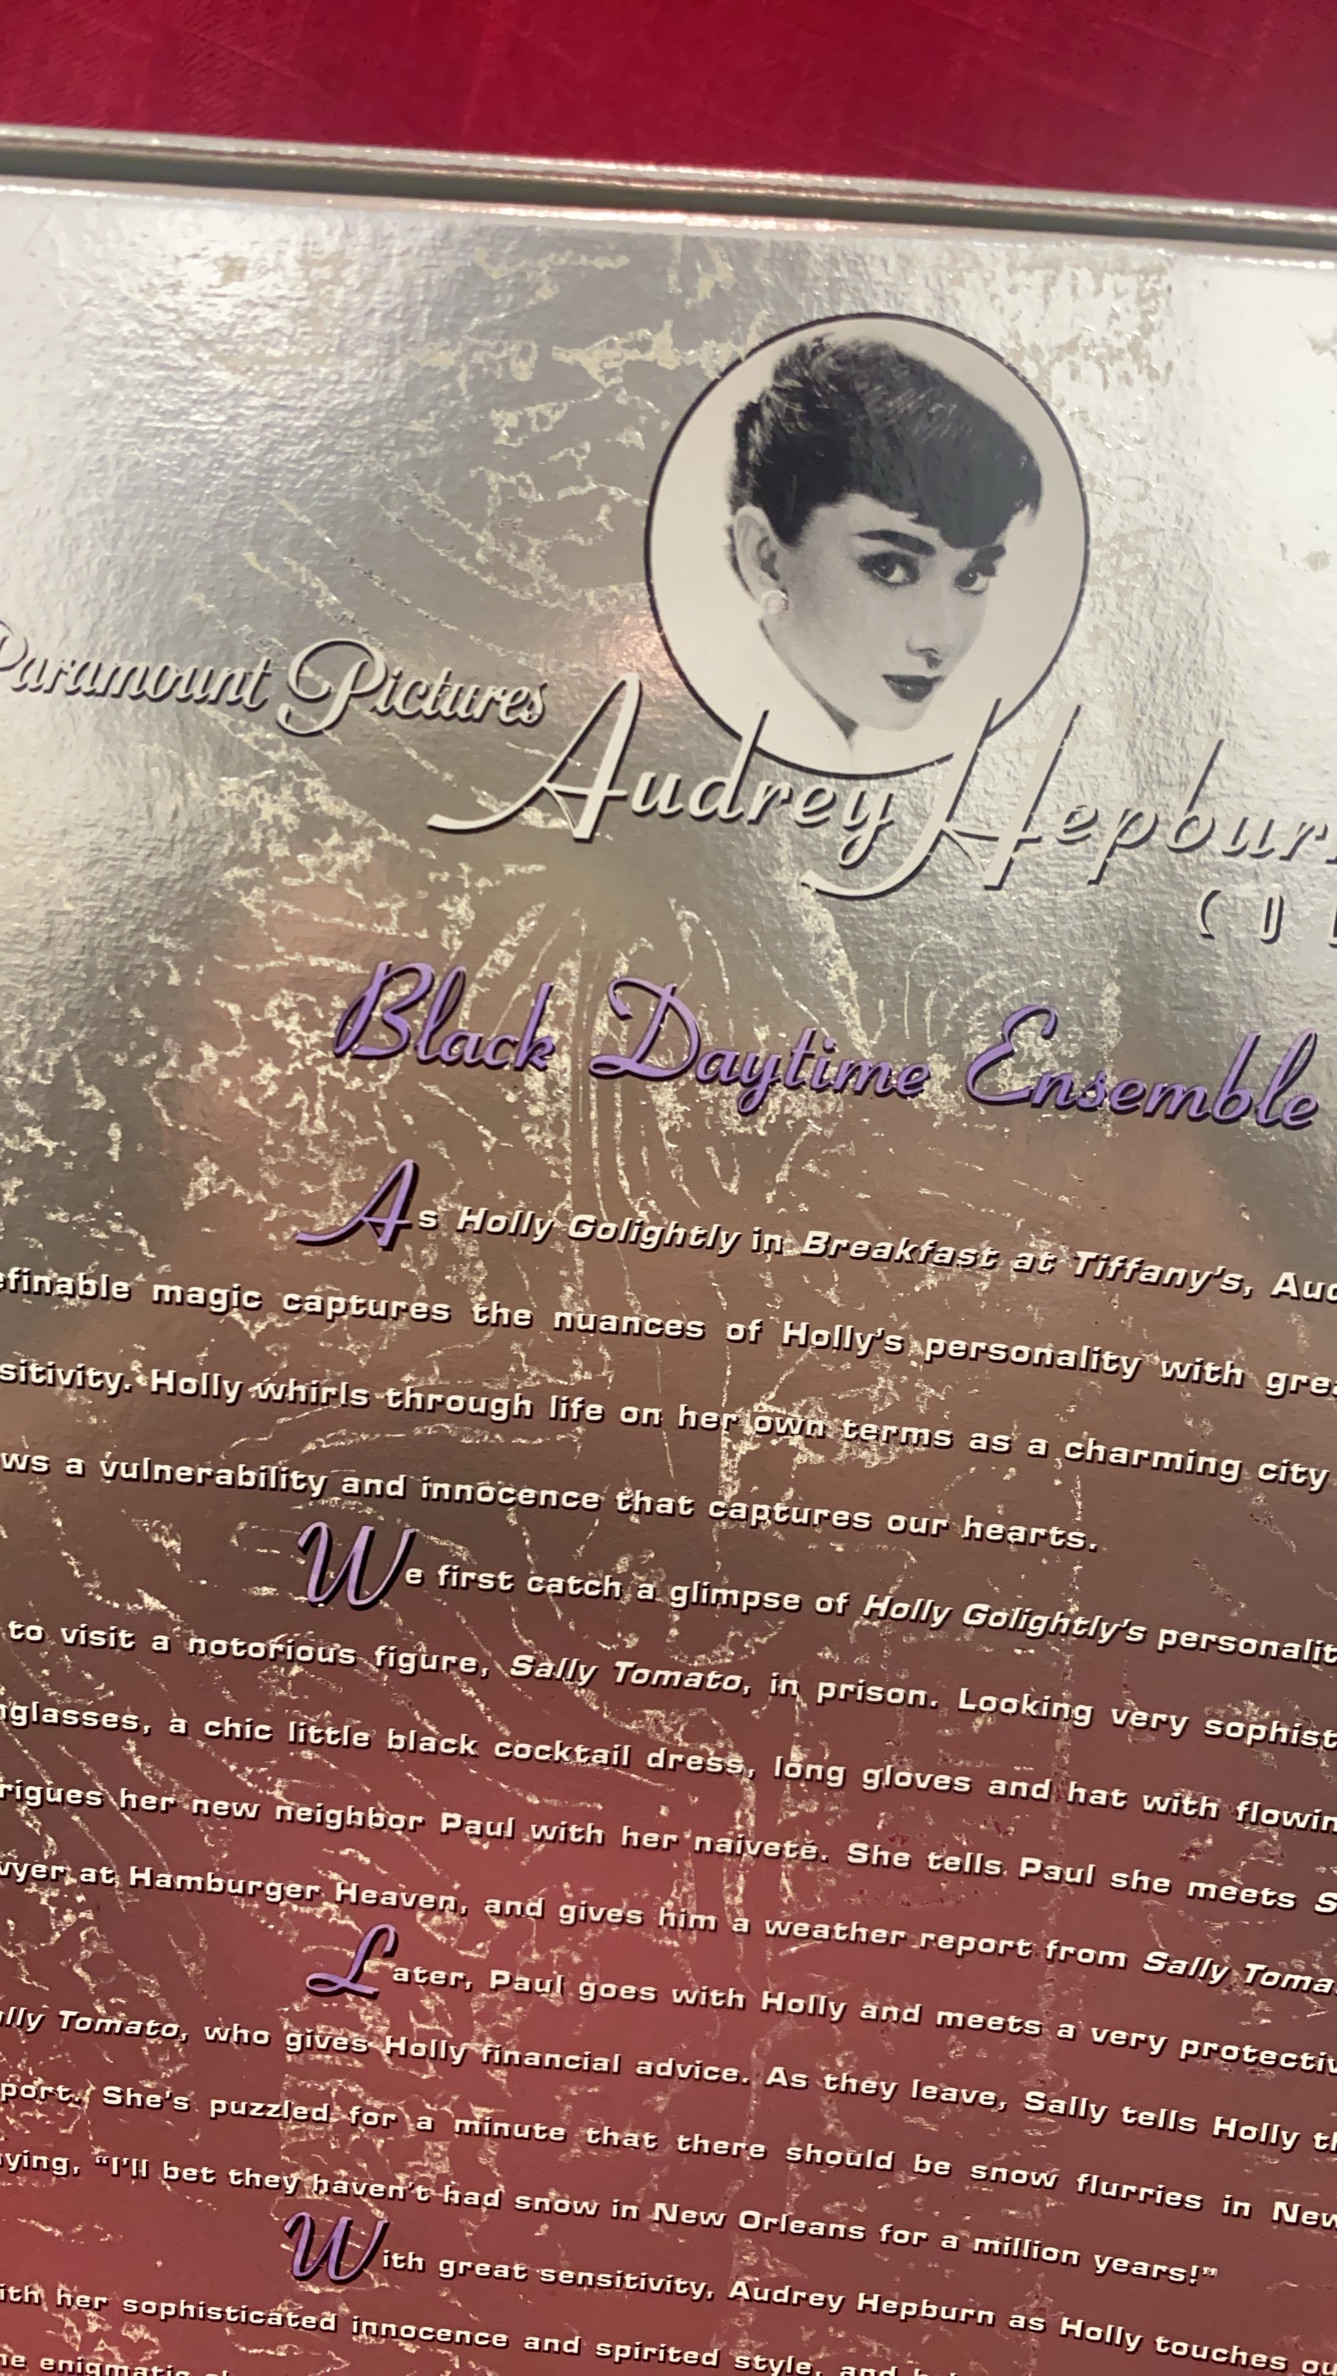 Paramount Pictures
Audrey Hepburn
Black Daytime Ensemble
As Holly Golightly in Breakfast at Tiffany's,
magic captures the nuances of Holly's personality with
Holly whirls through life on her own terms as a charming city
a vulnerability and innocence that captures our hearts.
We first catch a glimpse of Holly Golightly's
to visit a notorious figure, Sally Tomato, in prison. Looking very
a chic little black cocktail dress, long gloves and hat with
her new neighbor Paul with her naiveté. She tells Paul she meets
at Hamburger Heaven, and gives him a weather report from Sally
Later, Paul goes with Holly and meets a very
Tomato, who gives Holly financial advice. As they leave, Sally tells Holly
She's puzzled for a minute that there should be snow flurries in New
"I'll bet they haven't had snow in New Orleans for a million years!"
With great sensitivity, Audrey Hepburn as Holly touches
her sophisticated innocence and spirited style, and
enigmatic